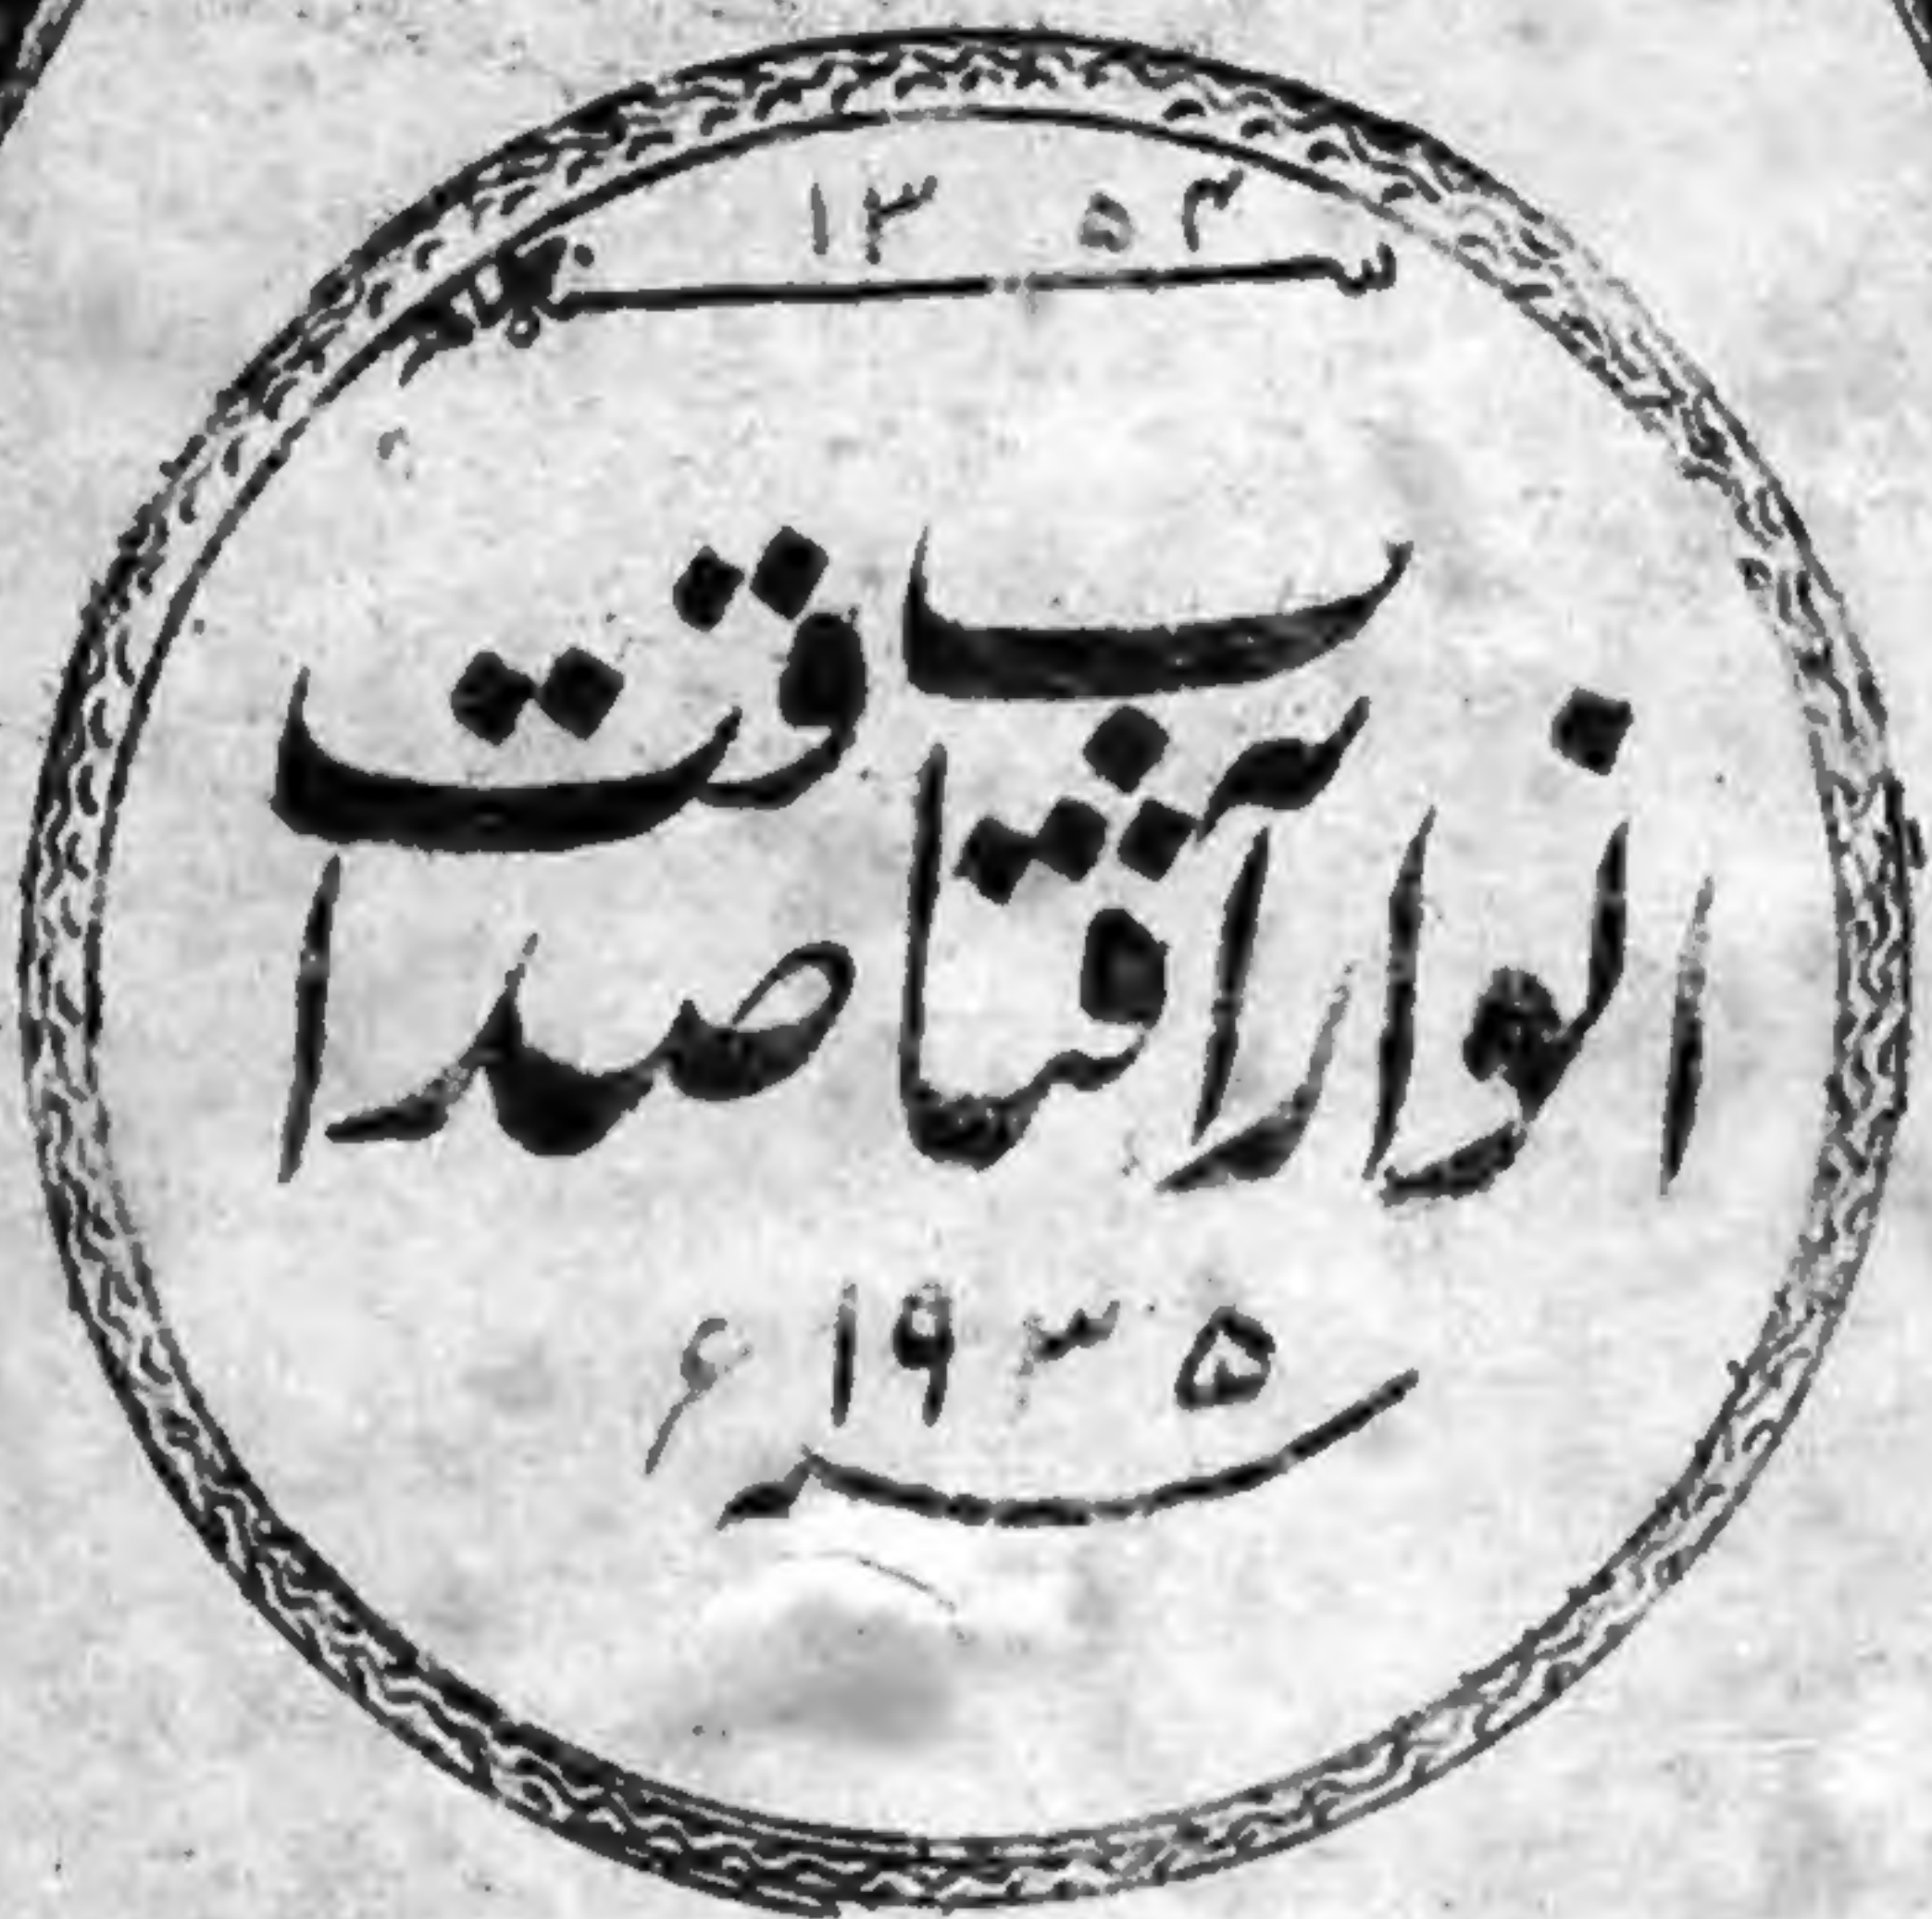 ۱۳۵۴
انوار آفتاب صداقت
۱۹۳۵ء